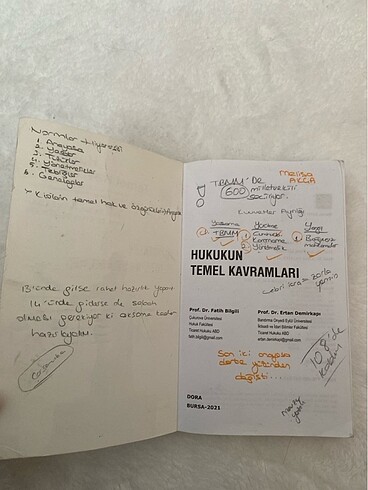 Normlar Hiyerarşisi
1. Anayasa
2. Yasalar
3. Tüzükler
4. Yönetmelikler
5. Tebliğler
6. Genelgeler
Kişinin temel hak ve özgürlükleri
13'ünde gitse rahat hazırlık yapar
14'ünde gidirse de sabah
olması gerekiyor ki akşama kadar
hazırlayalım.
Melisa
AKÇA
! TBMM'DE
600 milletvekili
seçiliyor.
Kuvvetler Ayrılığı
Yasama Yürütme Yargı
TBMM Cumhurb. Bağımsız
Kararname mahkemeler
Yönetmelik
HUKUKUN
TEMEL KAVRAMLARI
cebri icra zorla
Prof. Dr. Fatih Bilgili
Çukurova Üniversitesi
Hukuk Fakültesi
Ticaret Hukuku ABD
fatih.bilgili@gmail.com
Prof. Dr. Ertan Demirkapı
Bandırma Onyedi Eylül Üniversitesi
İktisadi ve İdari Bilimler Fakültesi
Ticaret Hukuku ABD
ertan.demirkapi@gmail.com
Son iki anayasa
darbe yüzünden
değişti...
108'de
kaldım
DORA
BURSA-2021